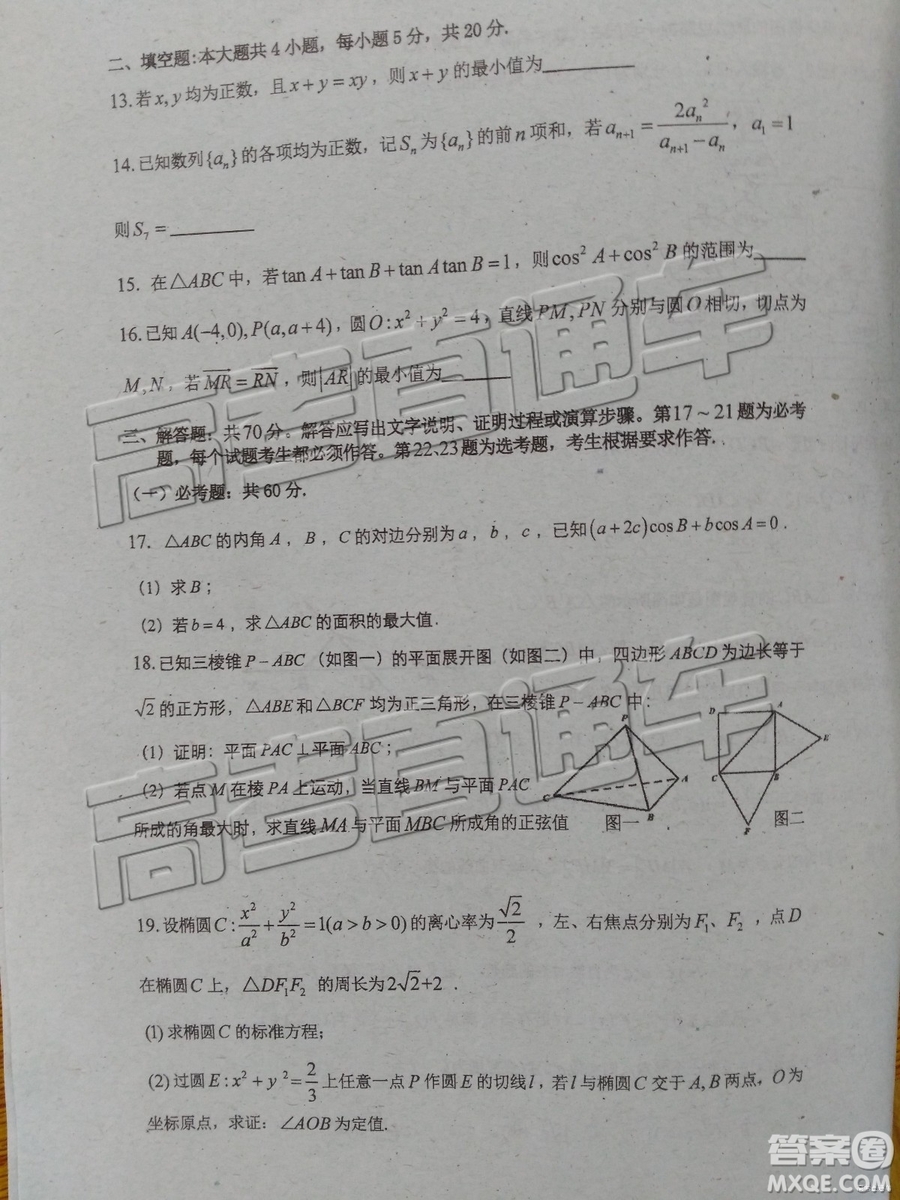 二、填空题:本大题共4小题，每小题5分，共20分.
13.若x,y均为正数，且x+y=xy，则x+y的最小值为________
14.已知数列{aₙ}的各项均为正数，记Sₙ为{aₙ}的前n项和，若aₙ₊₁=2aₙ²/(aₙ₊₁−aₙ)，a₁=1
则S₇=________
15. 在△ABC中，若tanA+tanB+tanAtanB=1，则cos²A+cos²B的范围为____
16.已知A(−4,0),P(a,a+4)，圆O:x²+y²=4，直线PM,PN分别与圆O相切，切点为
M,N，若MR=RN，则|AR|的最小值为______
三、解答题：共70分。解答应写出文字说明、证明过程或演算步骤。第17～21题为必考
题，每个试题考生都必须作答。第22、23题为选考题，考生根据要求作答.
（一）必考题：共60分.
17. △ABC的内角A，B，C的对边分别为a，b，c，已知(a+2c)cosB+bcosA=0.
（1）求B；
（2）若b=4，求△ABC的面积的最大值.
18.已知三棱锥P−ABC（如图一）的平面展开图（如图二）中，四边形ABCD为边长等于
√2的正方形，△ABE和△BCF均为正三角形，在三棱锥P−ABC中：
（1）证明：平面PAC⊥平面ABC；
（2）若点M在棱PA上运动，当直线BM与平面PAC
所成的角最大时，求直线MA与平面MBC所成角的正弦值
P
C
A
B
图一
D
A
E
C
B
F
图二
19.设椭圆C:x²/a²+y²/b²=1(a>b>0)的离心率为√2/2，左、右焦点分别为F₁、F₂，点D
在椭圆C上，△DF₁F₂的周长为2√2+2.
(1)求椭圆C的标准方程；
(2)过圆E:x²+y²=2/3上任意一点P作圆E的切线l，若l与椭圆C交于A,B两点，O为
坐标原点，求证：∠AOB为定值.
高考直通车
高考直通车
答案圈
MXQE.COM